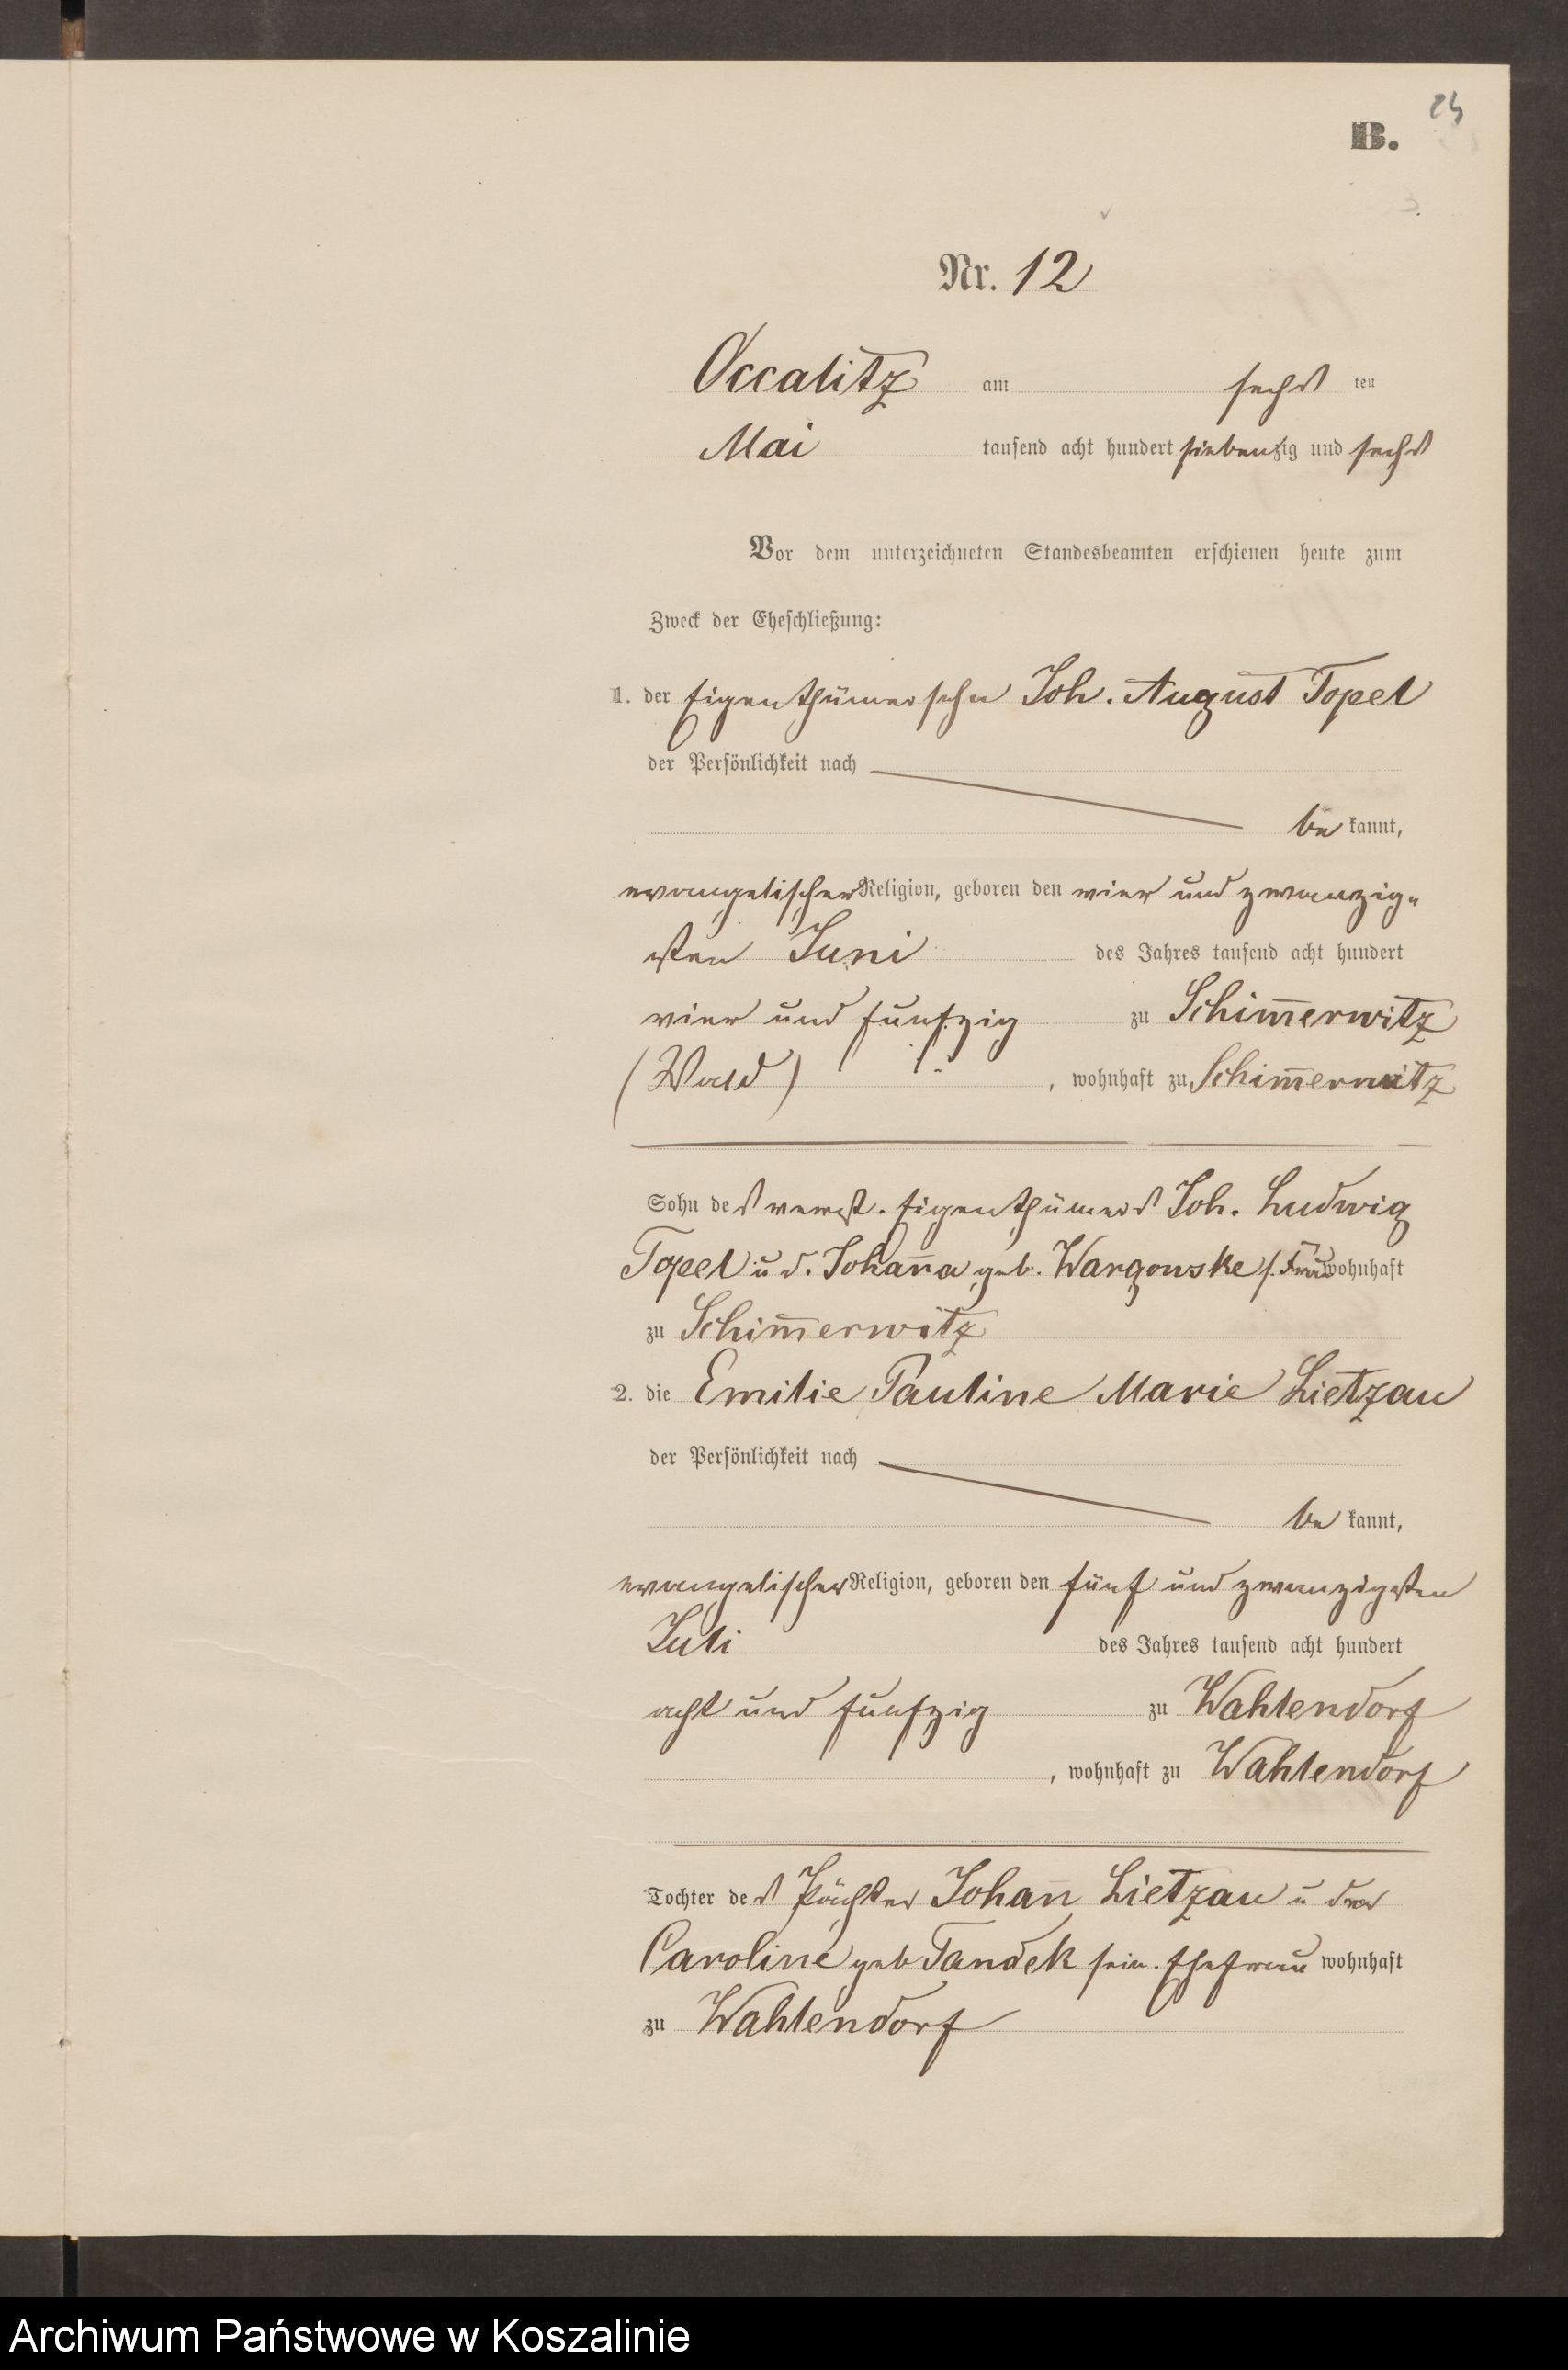 24
B.
Nr. 12
Occalitz am sechs ten
Mai tausend acht hundert siebenzig und sechs
Vor dem unterzeichneten Standesbeamten erschienen heute zum
Zweck der Eheschließung:
1. der Eigenthümersohn Joh. August Topel
der Persönlichkeit nach
be kannt,
evangelischer Religion, geboren den vier und zwanzig-
sten Juni des Jahres tausend acht hundert
vier und funfzig zu Schim̅erwitz
(Wald), wohnhaft zu Schim̅erwitz
Sohn des verst. Eigenthümers Joh. Ludwig
Topel u d. Johan̅a geb. Wargowske s. Frau wohnhaft
zu Schim̅erwitz
2. die Emilie Pauline Marie Lietzau
der Persönlichkeit nach
be kannt,
evangelischer Religion, geboren den fünf und zwanzigsten
Juli des Jahres tausend acht hundert
acht und funfzig zu Wahlendorf
, wohnhaft zu Wahlendorf
Tochter des Pächter Johan̅ Lietzau u der
Caroline geb Tandek sein. Ehefrau wohnhaft
zu Wahlendorf
Archiwum Państwowe w Koszalinie